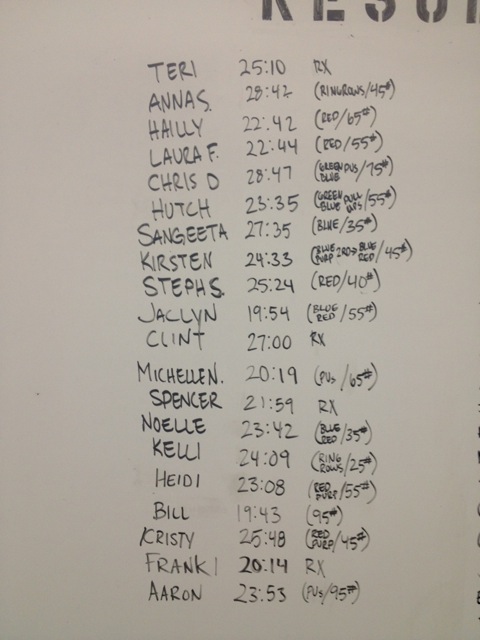 RESUL
TERI 25:10 RX
ANNA S. 28:42 (RINGROWS/45#)
HAILLY 22:42 (RED/65#)
LAURA F. 22:44 (RED/55#)
CHRIS D 28:47 (GREEN BLUE PUS/75#)
HUTCH 23:35 (GREEN BLUE PULL UPS/55#)
SANGEETA 27:35 (BLUE/35#)
KIRSTEN 24:33 (BLUE PURP 2RD→ BLUE RED/45#)
STEPH S. 25:24 (RED/40#)
JACLYN 19:54 (BLUE RED/55#)
CLINT 27:00 RX
MICHELLE N. 20:19 (PUS/65#)
SPENCER 21:59 RX
NOELLE 23:42 (BLUE RED/35#)
KELLI 24:09 (RING ROWS/25#)
HEIDI 23:08 (RED PURP/55#)
BILL 19:43 (95#)
KRISTY 25:48 (RED PURP/45#)
FRANK 1 20:14 RX
AARON 23:53 (PUS/95#)